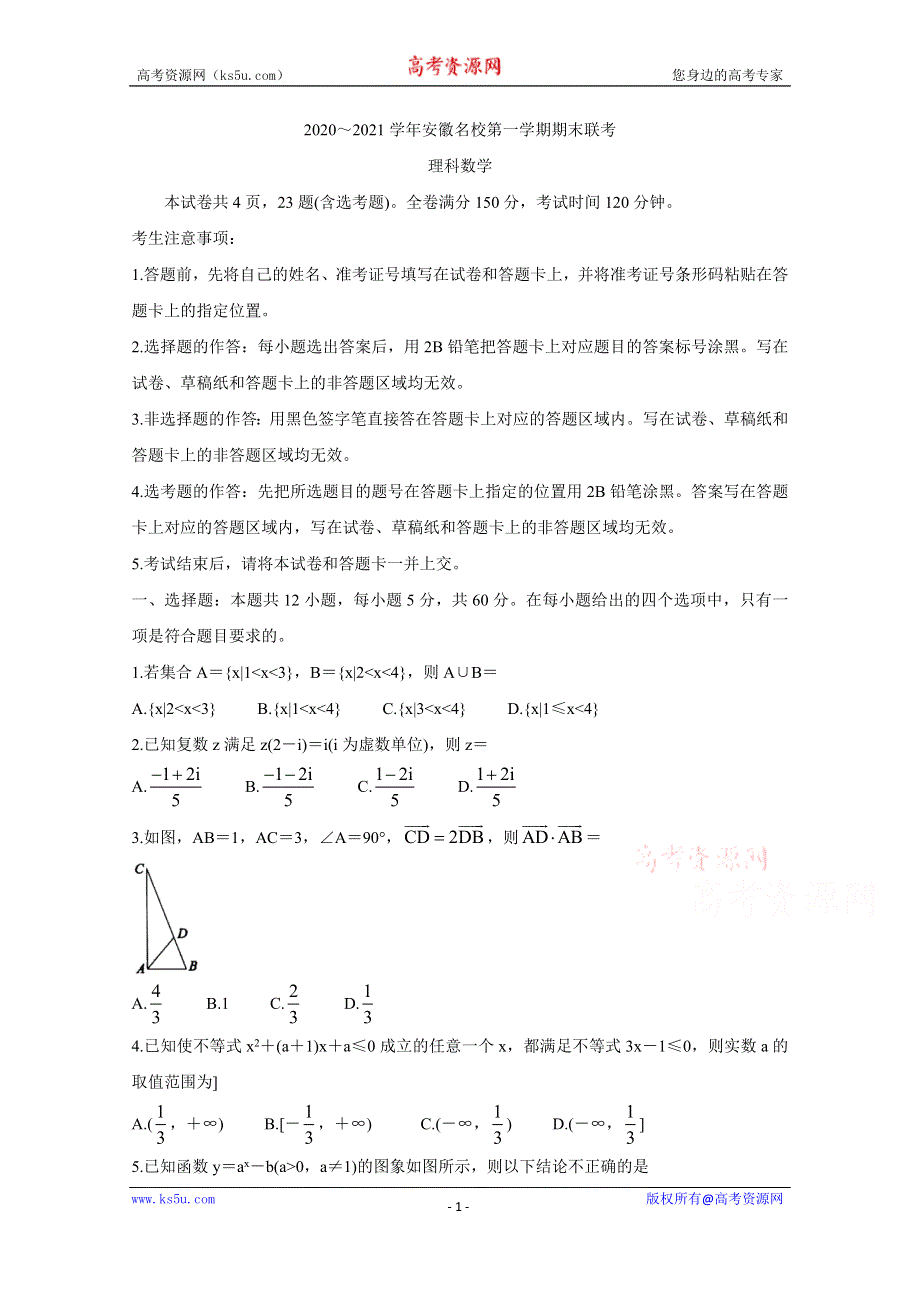 高考资源网（ks5u.com）
高考资源网
您身边的高考专家
2020～2021 学年安徽名校第一学期期末联考
理科数学
本试卷共 4 页，23 题(含选考题)。全卷满分 150 分，考试时间 120 分钟。
考生注意事项：
1.答题前，先将自己的姓名、准考证号填写在试卷和答题卡上，并将准考证号条形码粘贴在答
题卡上的指定位置。
2.选择题的作答：每小题选出答案后，用 2B 铅笔把答题卡上对应题目的答案标号涂黑。写在
试卷、草稿纸和答题卡上的非答题区域均无效。
3.非选择题的作答：用黑色签字笔直接答在答题卡上对应的答题区域内。写在试卷、草稿纸和
答题卡上的非答题区域均无效。
4.选考题的作答：先把所选题目的题号在答题卡上指定的位置用 2B 铅笔涂黑。答案写在答题
卡上对应的答题区域内，写在试卷、草稿纸和答题卡上的非答题区域均无效。
5.考试结束后，请将本试卷和答题卡一并上交。
一、选择题：本题共 12 小题，每小题 5 分，共 60 分。在每小题给出的四个选项中，只有一
项是符合题目要求的。
1.若集合 A＝{x|1<x<3}，B＝{x|2<x<4}，则 A∪B＝
A.{x|2<x<3} B.{x|1<x<4} C.{x|3<x<4} D.{x|1≤x<4}
2.已知复数 z 满足 z(2－i)＝i(i 为虚数单位)，则 z＝
A.(−1+2i)/5 B.(−1−2i)/5 C.(1−2i)/5 D.(1+2i)/5
3.如图，AB＝1，AC＝3，∠A＝90°，CD⃗＝2DB⃗，则 AD⃗·AB⃗＝
高考资源网
高考资源网
C
D
A B
A.4/3 B.1 C.2/3 D.1/3
4.已知使不等式 x²＋(a＋1)x＋a≤0 成立的任意一个 x，都满足不等式 3x－1≤0，则实数 a 的
取值范围为]
A.(1/3，＋∞) B.[－1/3，＋∞) C.(－∞，1/3) D.(－∞，1/3]
5.已知函数 y＝aˣ－b(a>0，a≠1)的图象如图所示，则以下结论不正确的是
www.ks5u.com
- 1 -
版权所有@高考资源网